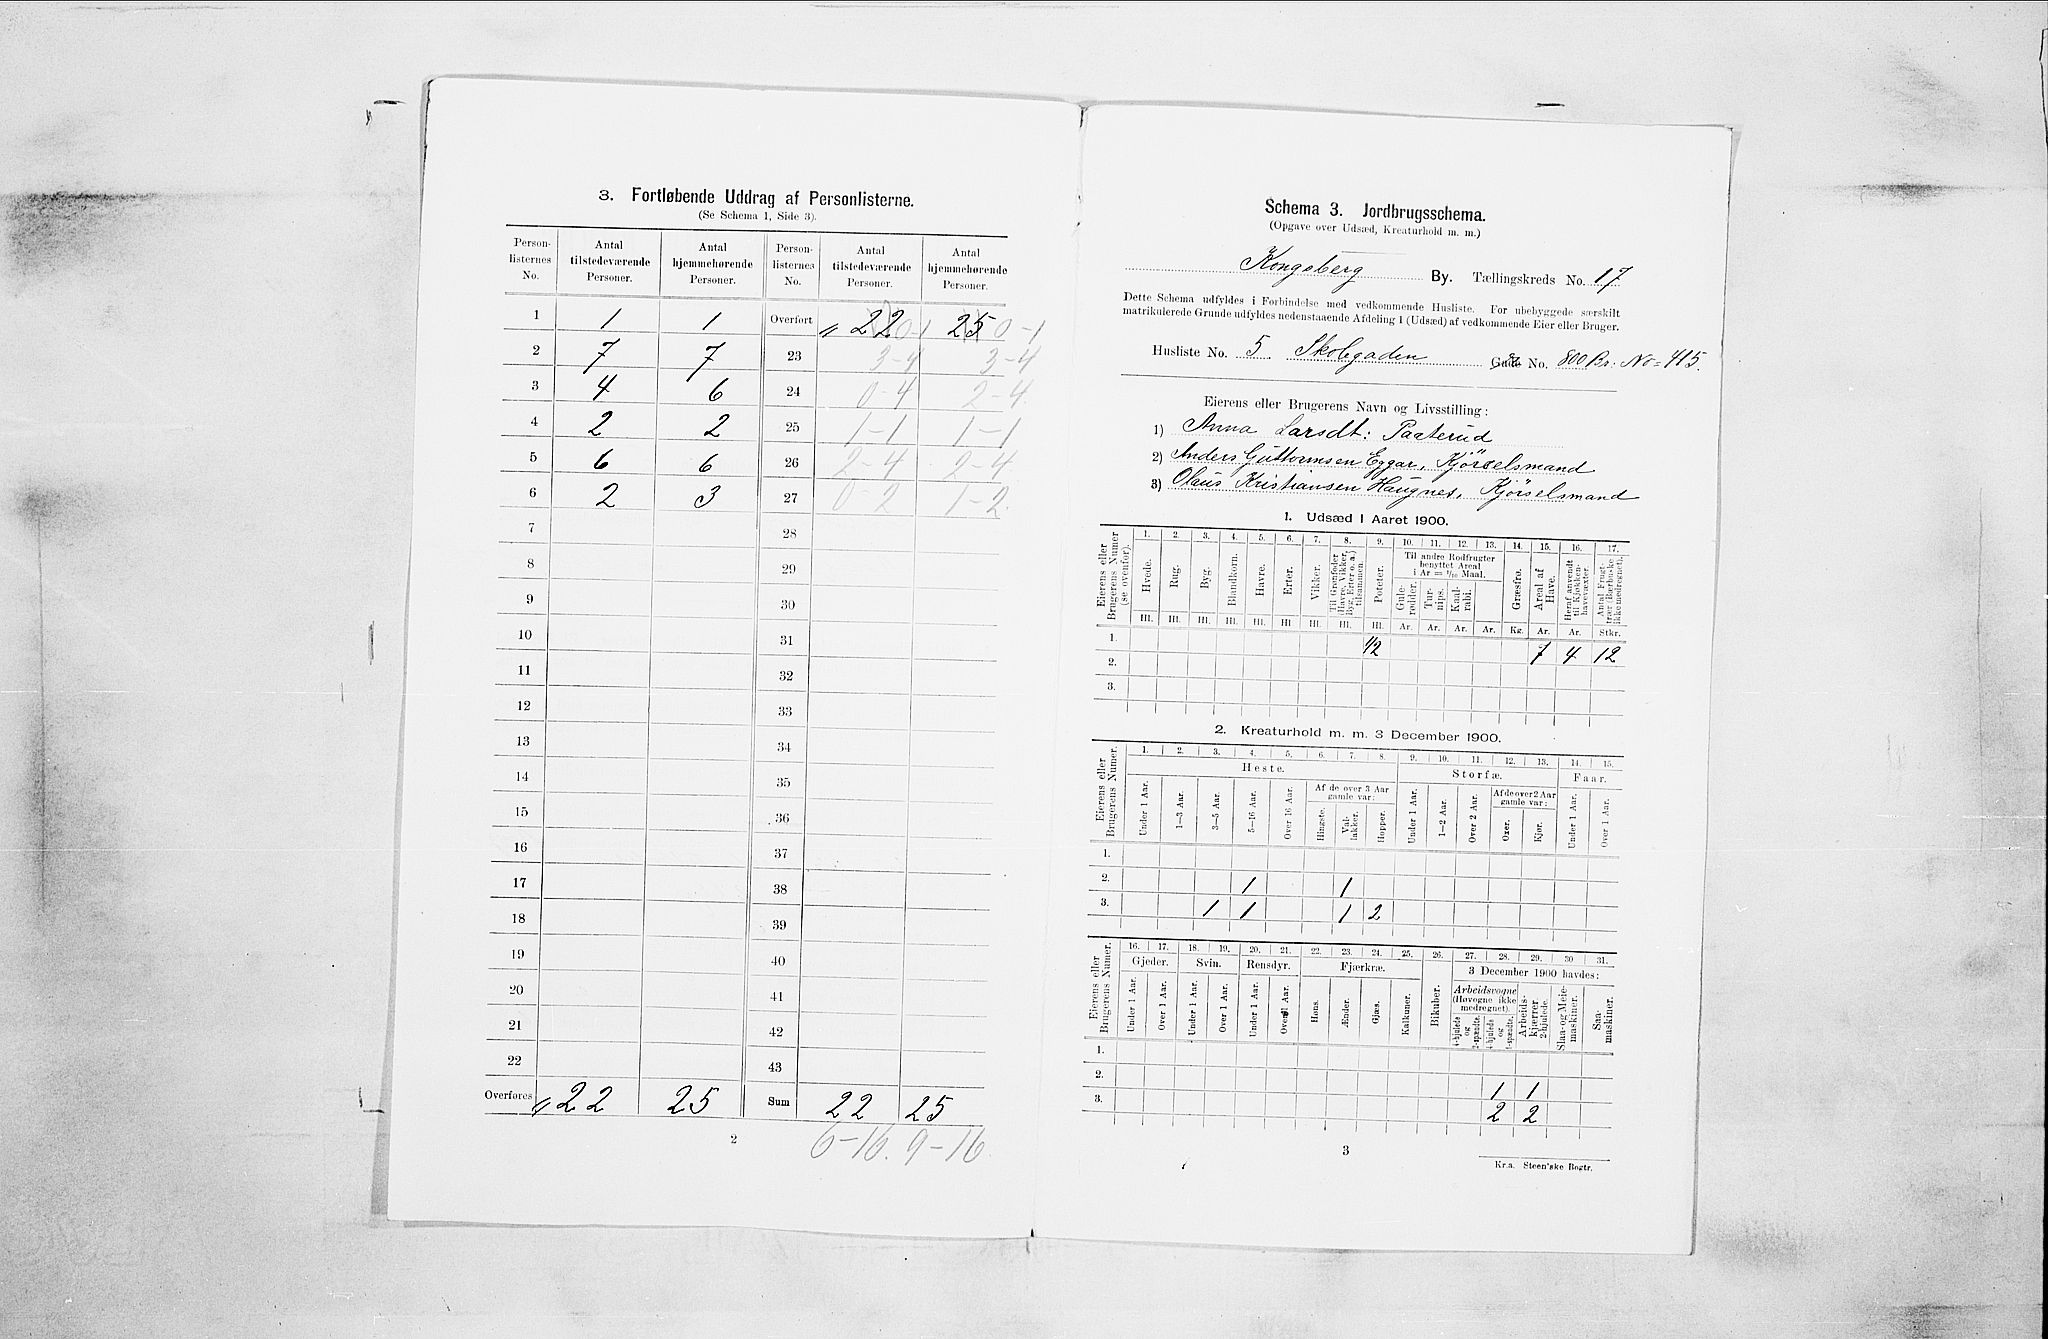 3. Fortløbende Uddrag af Personlisterne.
(Se Schema 1, Side 3).
Person-listernes No. | Antal tilstedeværende Personer. | Antal hjemmehørende Personer. | Person-listernes No. | Antal tilstedeværende Personer. | Antal hjemmehørende Personer.
1 | 1 | 1 | Overført | 22 0-1 | 25 0-1
2 | 7 | 7 | 23 | 3-4 | 3-4
3 | 4 | 6 | 24 | 0-4 | 2-4
4 | 2 | 2 | 25 | 1-1 | 1-1
5 | 6 | 6 | 26 | 2-4 | 2-4
6 | 2 | 3 | 27 | 0-2 | 1-2
7 | 28
8 | 29
9 | 30
10 | 31
11 | 32
12 | 33
13 | 34
14 | 35
15 | 36
16 | 37
17 | 38
18 | 39
19 | 40
20 | 41
21 | 42
22 | 43
Overføres | 22 | 25 | Sum | 22 | 25
6-16. 9-16.
2
Schema 3. Jordbrugsschema.
(Opgave over Udsæd, Kreaturhold m. m.)
Kongsberg By. Tællingskreds No. 17
Dette Schema udfyldes i Forbindelse med vedkommende Husliste. For ubebyggede særskilt
matrikulerede Grunde udfyldes nedenstaaende Afdeling 1 (Udsæd) af vedkommende Eier eller Bruger.
Husliste No. 5 Skolegaden Gade No. 800 Br: No= 415.
Eierens eller Brugerens Navn og Livsstilling:
1) Anna Larsdt: Paaterud
2) Anders Guttormsen Eggar, Kjørselsmand
3) Olaus Kristiansen Haugnes, Kjørselsmand
1. Udsæd i Aaret 1900.
Eierens eller Brugerens Numer (se ovenfor). | 1. | 2. | 3. | 4. | 5. | 6. | 7. | 8. | 9. | 10. | 11. | 12. | 13. | 14. | 15. | 16. | 17.
Til andre Rodfrugter benyttet Areal i Ar = 1/10 Maal.
Hvede. | Rug. | Byg. | Blandkorn. | Havre. | Erter. | Vikker. | Til Grønfoder (Havre, Vikker, Byg, Erter o. a.) tilsammen. | Poteter. | Gule-rødder. | Tur-nips. | Kaal-rabi. | Græsfrø. | Areal af Have. | Heraf anvendt til Kjøkken-havevæxter. | Antal Frugt-trær (Bærbuske ikke medregnet).
Hl. | Hl. | Hl. | Hl. | Hl. | Hl. | Hl. | Hl. | Hl. | Ar. | Ar. | Ar. | Ar. | Kg. | Ar. | Ar. | Stkr.
1. | 1/2 | 7 | 4 | 12
2.
3.
2. Kreaturhold m. m. 3 December 1900.
Eierens eller Brugerens Numer. | 1. | 2. | 3. | 4. | 5. | 6. | 7. | 8. | 9. | 10. | 11. | 12. | 13. | 14. | 15.
Heste. | Storfæ. | Faar.
Af de over 3 Aar gamle var: | Af de over 2 Aar gamle var:
Under 1 Aar. | 1—3 Aar. | 3—5 Aar. | 5—16 Aar. | Over 16 Aar. | Hingste. | Val-lakker. | Hopper. | Under 1 Aar. | 1—2 Aar. | Over 2 Aar. | Oxer. | Kjør. | Under 1 Aar. | Over 1 Aar.
1.
2. | 1 | 1
3. | 1 | 1 | 1 | 2
Eierens eller Brugerens Numer. | 16. | 17. | 18. | 19. | 20. | 21. | 22. | 23. | 24. | 25. | 26. | 27. | 28. | 29. | 30 | 31.
Gjeder. | Svin. | Rensdyr. | Fjærkræ. | 3 December 1900 havdes:
Arbeidsvogne (Høvogne ikke medregnet).
Under 1 Aar. | Over 1 Aar. | Under 1 Aar. | Over 1 Aar. | Under 1 Aar. | Over 1 Aar. | Høns. | Ænder. | Gjæs. | Kalkuner. | Bikuber. | 4-hjulede og 2-spændte. | 4-hjulede og 1-spændte. | Arbeids-kjærrer 2-hjulede. | Slaa- og Meie-maskiner. | Saa-maskiner.
1.
2. | 1 | 1
3. | 2 | 2
3
Kr.a. Steen'ske Bogtr.